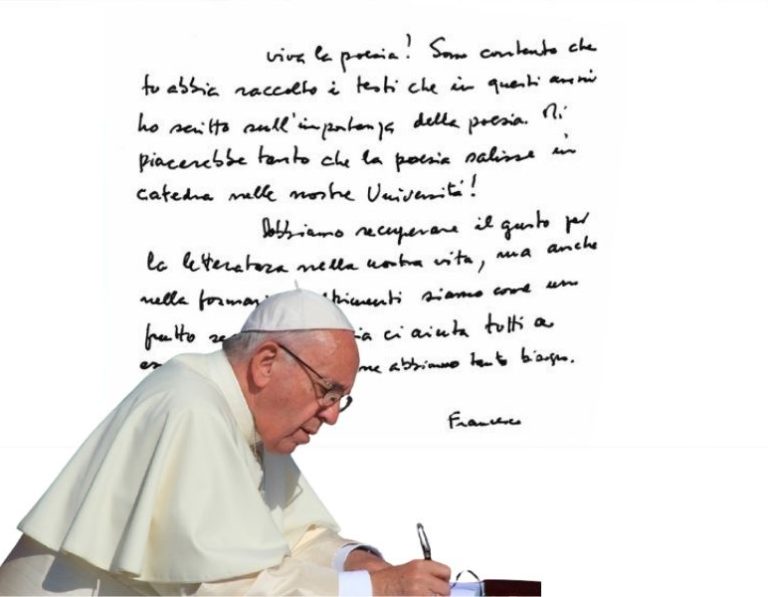 viva la poesia! Sono contento che
tu abbia raccolto i testi che in questi anni
ho scritto sull'importanza della poesia. Mi
piacerebbe tanto che la poesia salisse in
catedra nelle nostre Università!
Dobbiamo recuperare il gusto per
la letteratura nella nostra vita, ma anche
nella siamo come un
frutto ci aiuta tutti a
abbiamo tanto bisogno.
Francesco